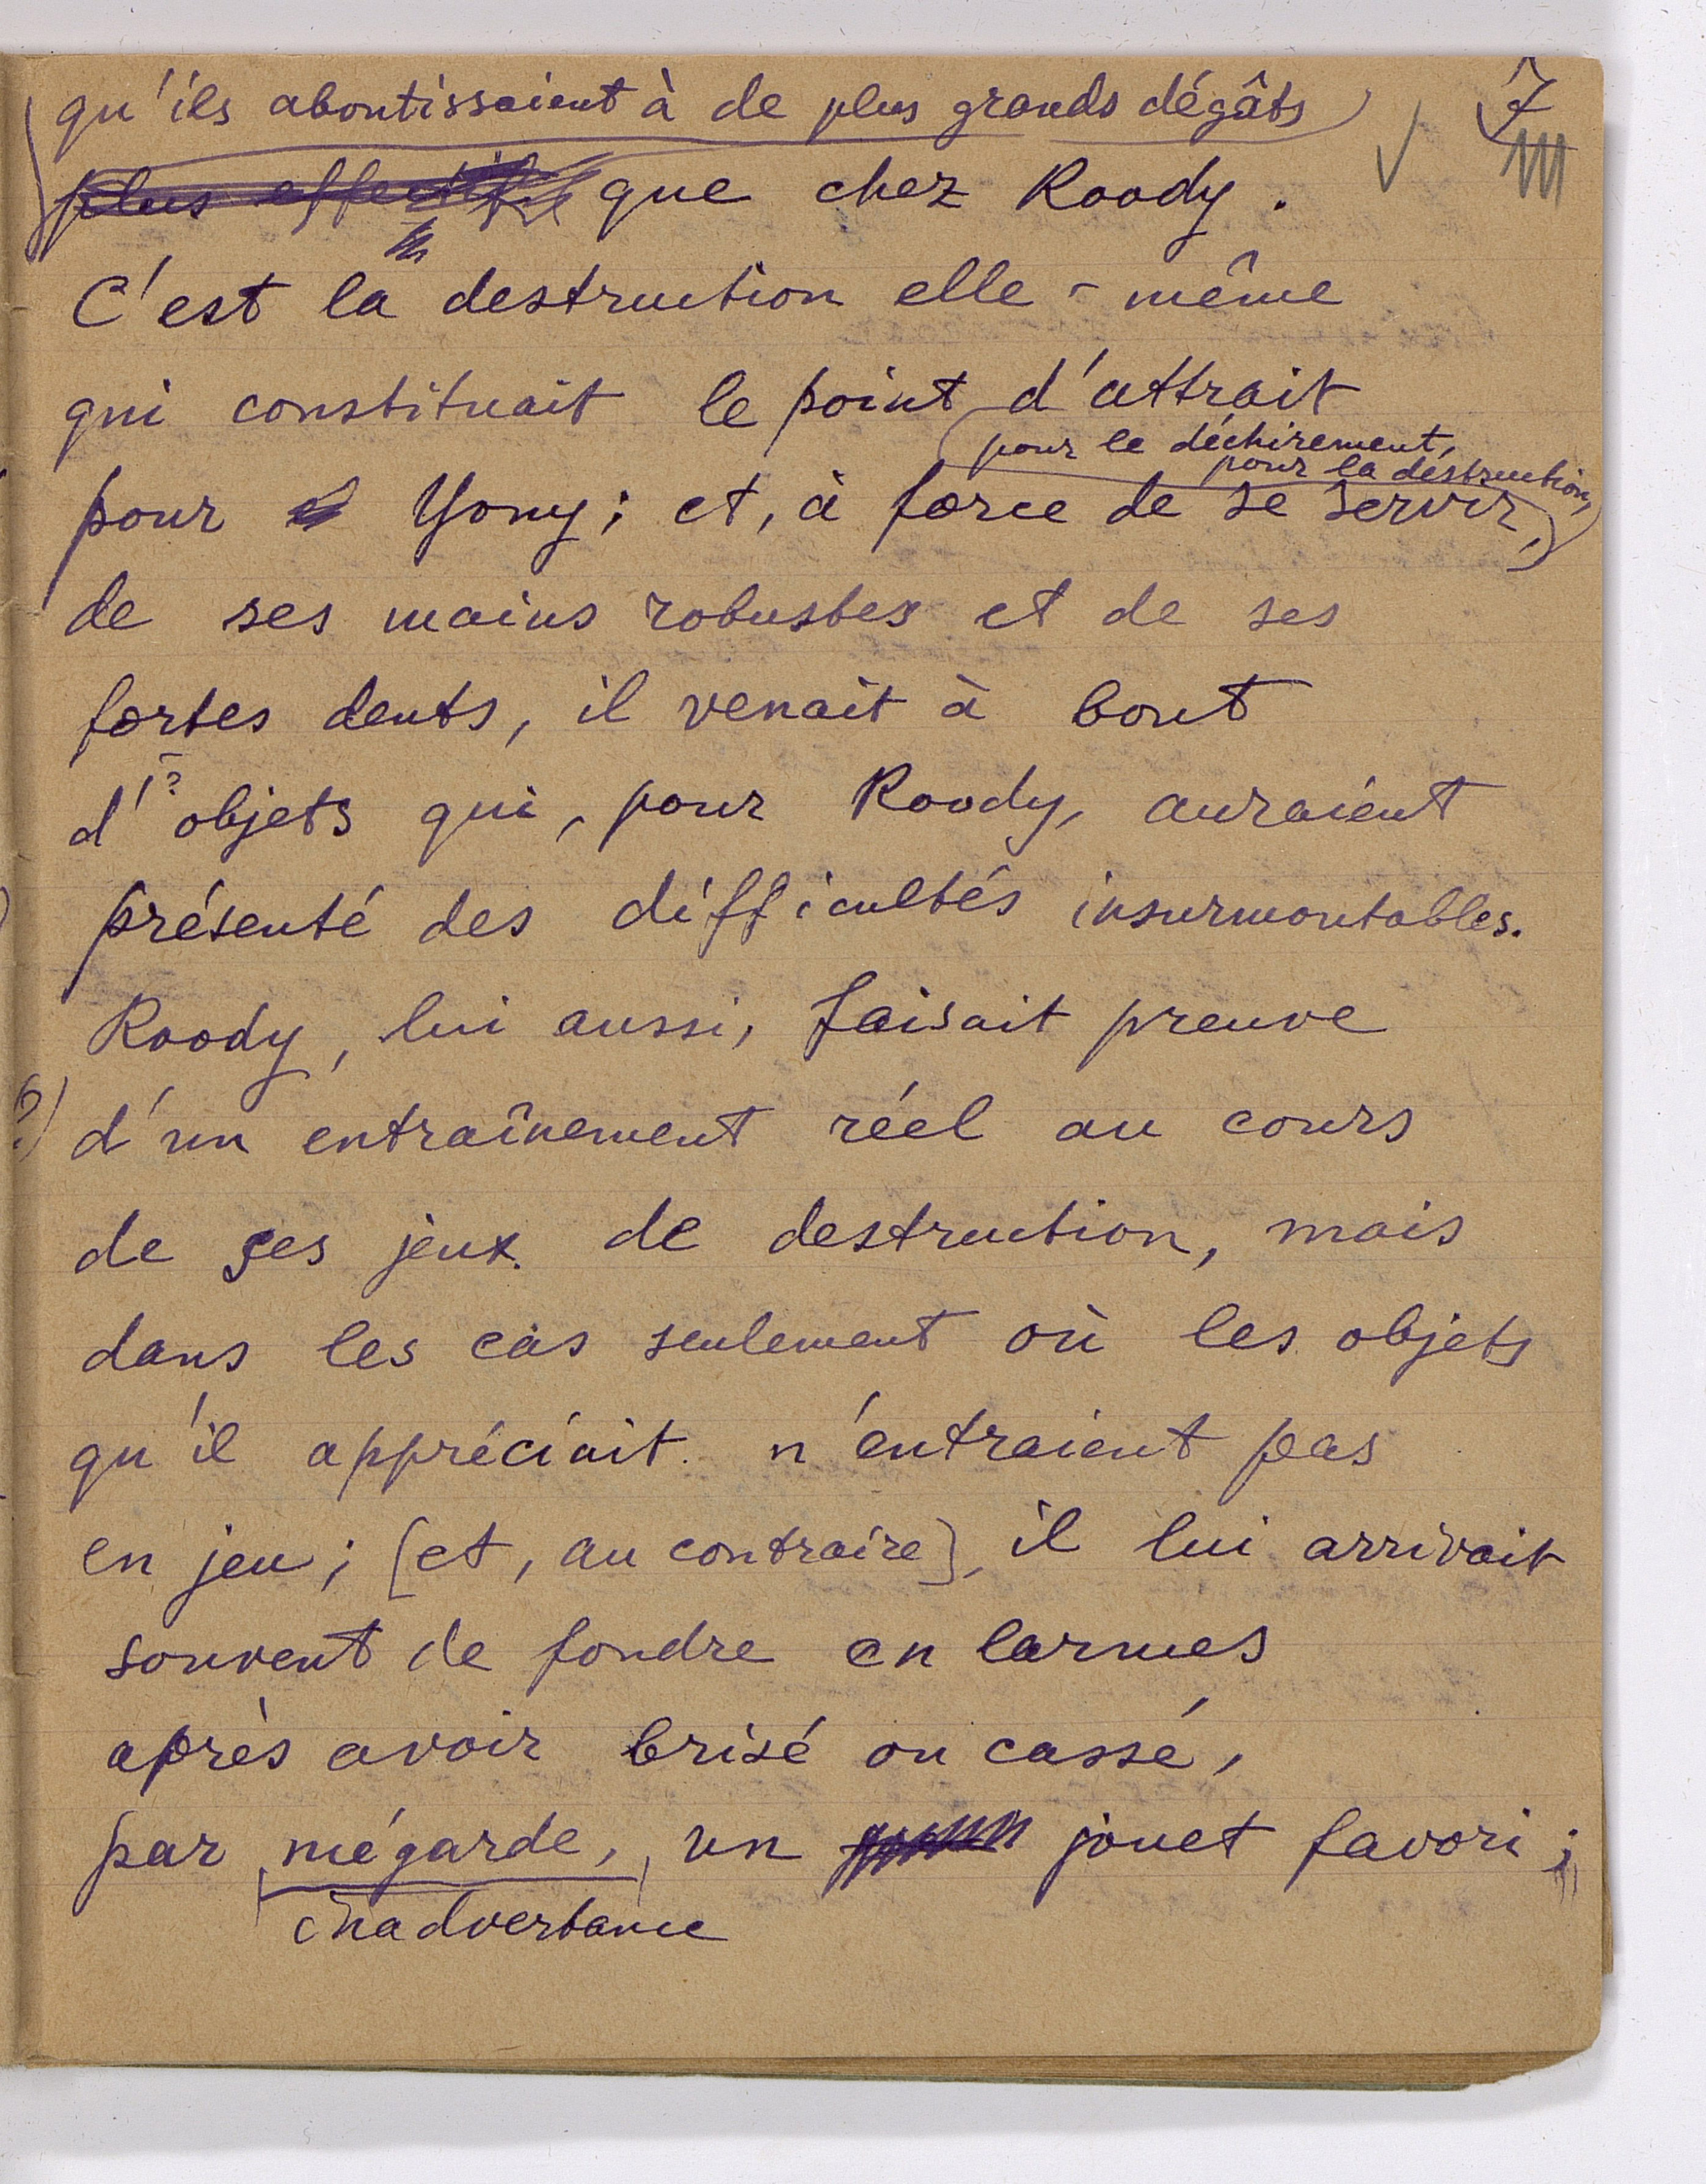 qu'ils aboutissaient à de plus grands dégâts
7
plus effectifs que chez Roody.
C'est la destruction elle-même
qui constituait le point d'attrait
pour le déchirement,
pour la destruction,
pour Yony; et, à force de se servir,
de ses mains robustes et de ses
fortes dents, il venait à bout
?
d'objets qui, pour Roody, auraient
présenté des difficultés insurmontables.
Roody, lui aussi, faisait preuve
?) d'un entraînement réel au cours
de ses jeux de destruction, mais
dans les cas seulement où les objets
qu'il appréciait n'entraient pas
en jeu; [et, au contraire], il lui arrivait
souvent de fondre en larmes
après avoir brisé ou cassé,
par mégarde, un jouet favori;
inadvertance